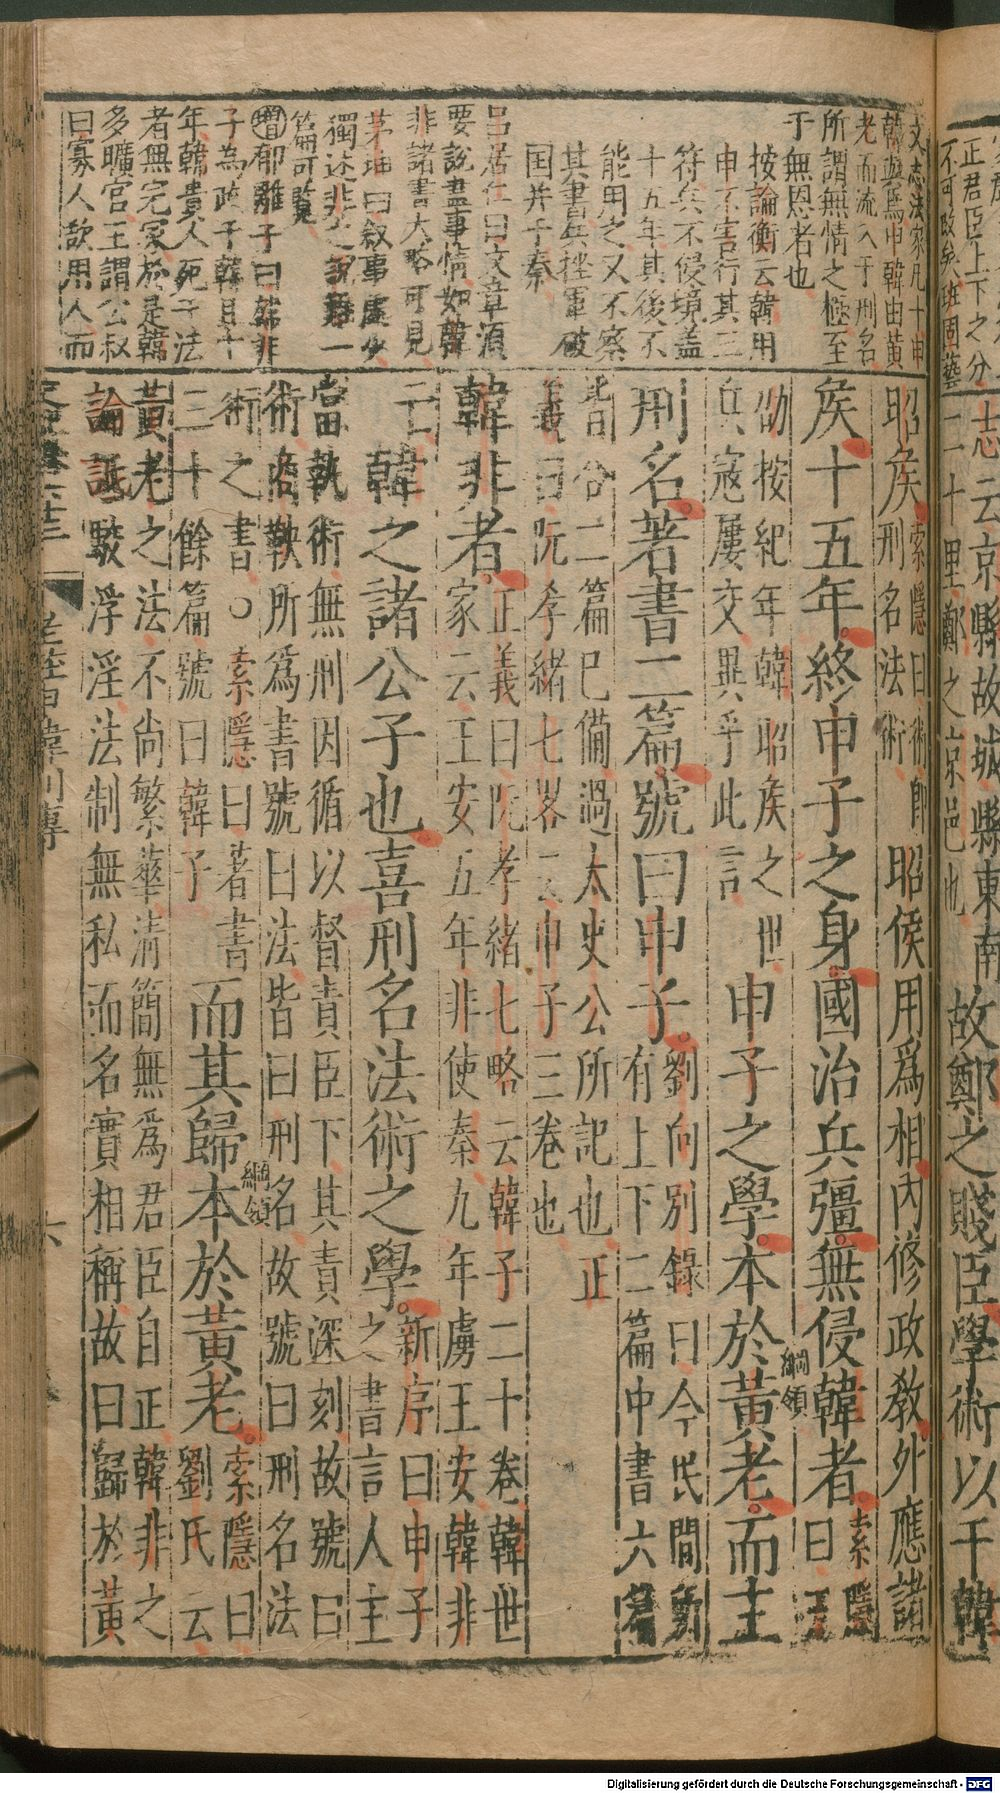 文志法家凡十申
韓與焉申韓由黃
老而流入于刑名
所謂無情之極至
于無恩者也
按論衡云韓用
申不害行其三
符兵不侵境蓋
十五年其後不
能用之又不察
其書兵挫軍破
国并于秦
呂居仁曰文章須
要說盡事情如韓
非諸書大略可見
茅坤曰敘事處少
獨述非之說難一
篇可覽
增郁離子曰韓非
子為政于韓且十
年韓貴人死于法
者無完家於是韓
多曠官王謂公叔
曰寡人欲用人而
昭矦
索隱曰術即
刑名法術
昭侯用爲相內修政教外應諸
矦十五年終申子之身國治兵彊無侵韓者
索隱
曰王
綱領
劭按紀年韓昭矦之世
兵寇屢交異乎此言
申子之學本於黃老而主
刑名著書二篇號曰申子
劉向別錄曰今民間所
有上下二篇中書六篇
皆合二篇已備過太史公所記也正
義曰阮孝緒七畧云申子三卷也
韓非者
正義曰阮孝緒七略云韓子二十卷韓世
家云王安五年非使秦九年虜王安韓非
亡
韓之諸公子也喜刑名法術之學
新序曰申子
之書言人主
當執術無刑因循以督責臣下其責深刻故號曰
術商鞅所爲書號曰法皆曰刑名故號曰刑名法
綱領
術之書○索隱曰著書
三十餘篇號曰韓子
而其歸本於黃老
索隱曰
劉氏云
黃老之法不尚繁華清簡無爲君臣自正韓非之
論詆駮浮淫法制無私而名實相稱故曰歸於黃
六
正君臣上下之分
不可改矣班固藝
志云京縣故城縣東南
二十里鄭之京邑也
故鄭之賤臣學術以干韓
Digitalisierung gefördert durch die Deutsche Forschungsgemeinschaft - DFG